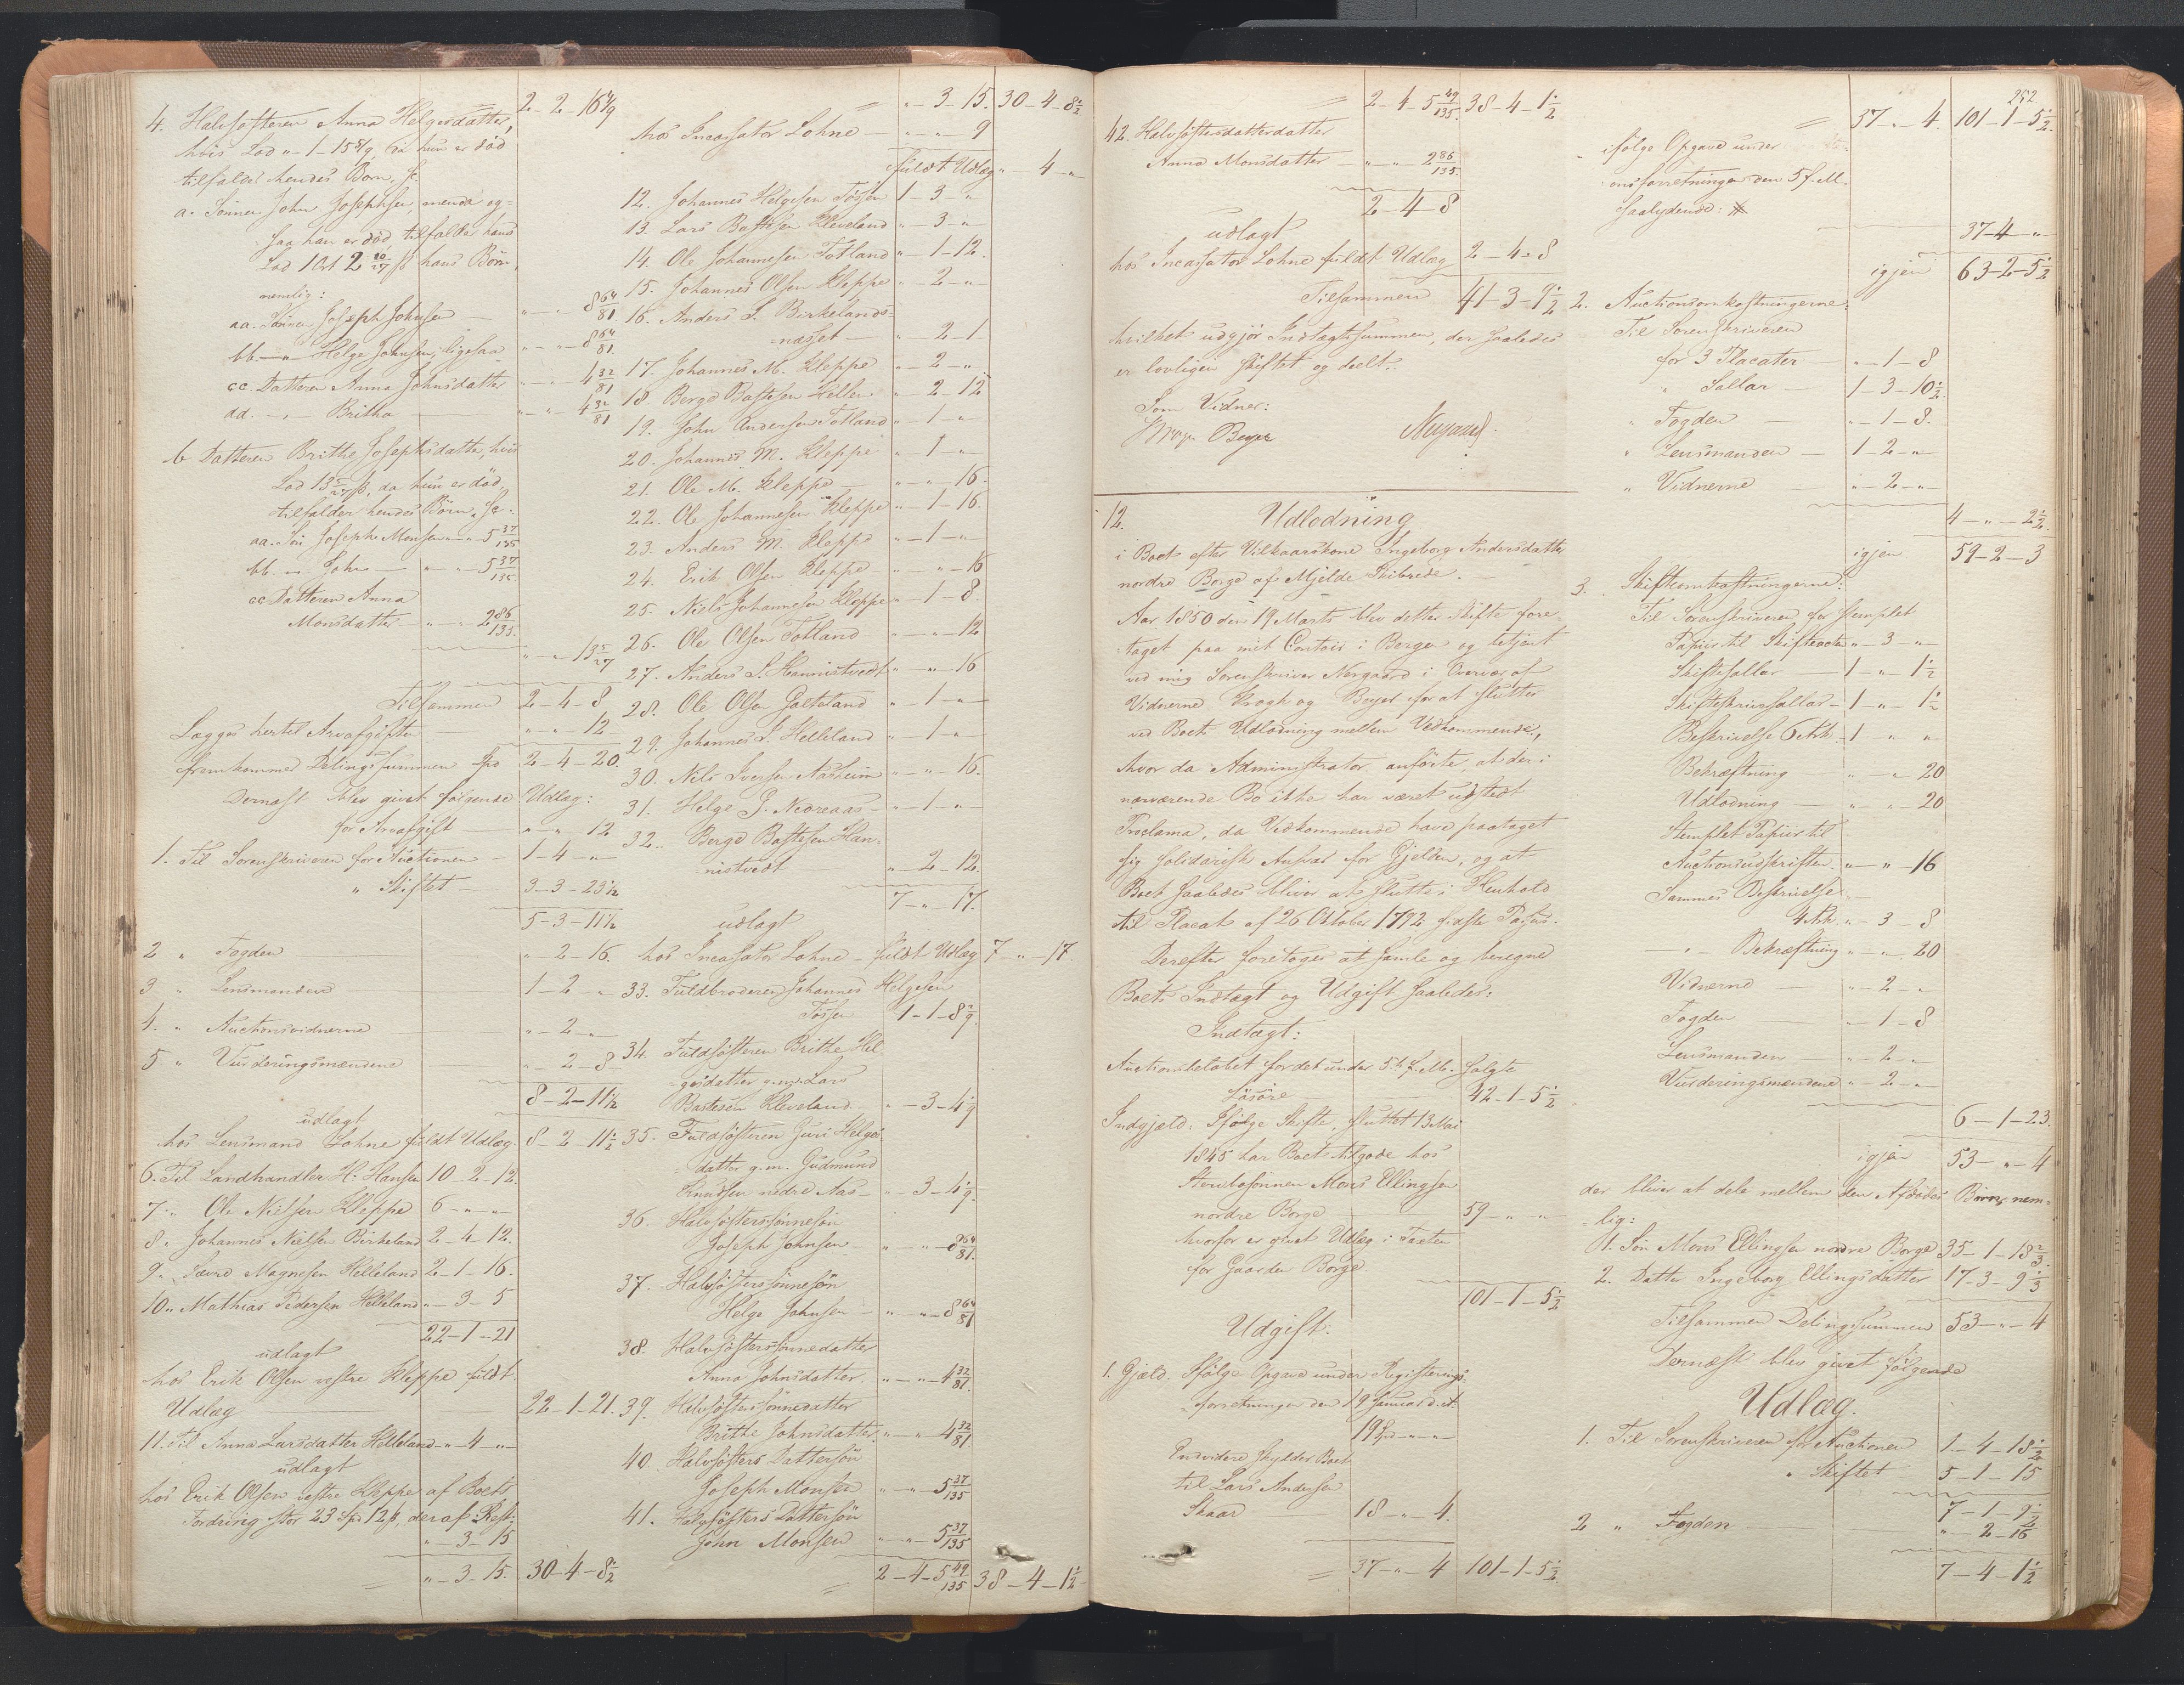 2-2-16 4/9
4. Halvsøsteren Anna Helgesdatter,
hvis Lod "-1-15 8/9, da hun er død
tilfalder hendes Børn, Sc:
a. Sønnen John Josephsen, menda og-
saa han er død tilfalder hans
Lod 1 Ort 2 10/27 ß hans Børn,
nemlig:
aa. Sønnen Joseph Johnsen — "-"-8 64/81
bb. —"— Helge Johnsen, ligesaa "-"-8 64/81
cc. Datteren Anna Johnsdatter "-"-4 32/81
dd. —"— Britha — "-"-4 32/81
b Datteren Brithe Josephsdatter, hvis
Lod 13 5/27 ß, da hun er død,
tilfalder hendes Børn, Sc:
aa. Søn Joseph Monsen "-"-5 37/135
bb. —"— John — "-"-5 37/135
cc Datteren Anna
Monsdatter — "-"-2 86/135
"-"-13 5/27
Tilsammen 2-4-8
Lægges hertil Arveafgiften "-"-12
fremkommer Delingssummen Spd 2-4-20
Dernæst blev givet følgende Udlæg:
for Arveafgift — "-"-12
1. Til Sorenskriveren for Auctionen — 1-4-"
" Skiftet — 3-3-23 1/2
5-3-11 1/2
2 " Fogden "-2-16.
3 " Lensmanden 1-2-"
4. " Auctionsvidnerne "-2-"
5 " Vurderingsmændene "-2-8
8-2-11 1/2
udlagt
hos Lensmand Lohne fuldt Udlæg. 8-2-11 1/2
6. Til Landhandler H. Hansen 10-2-12
7 " Ole Nielsen Kleppe 6-"-"
8 " Johannes Nielsen Birkeland 2-4-12.
9 " Sævre Magnesen Helleland 2-1-16.
10 " Mathias Pedersen Helleland "-3-5
22-1-21
udlagt
hos Erik Olsen vestre Kleppe fuldt
Udlæg 22-1-21.
11. Til Anna Larsdatter Helleland "-4-"
udlagt
hos Erik Olsen vestre Kleppe af Boets
Fordring stor 23 Spd 12 ß, deraf Rest:
"-3-15
"-3-15. 30-4-8 1/2
"-3-15. 30-4-8 1/2
hos Incassator Lohne — "-"-9
fuldt Udlæg "-4-"
12. Johannes Helgesen Tøssen 1-3-"
13. Lars Bastesen Kleveland "-3-"
14. Ole Johannesen Totland "-1-12.
15. Johannes Olsen Kleppe "-2-"
16. Anders S. Birkelands-
næsset — "-2-1
17. Johannes M. Kleppe "-2-"
18 Berge Bastesen Hellen "-2-12
19. John Andersen Totland "-1-"
20. Johannes M. Kleppe "-1-"
21. Ole M. Kleppe — "-"-16.
22. Ole Johannesen Kleppe "-1-16.
23. Anders M. Kleppe "-1-"
24. Erik Olsen Kleppe "-"-16
25. Niels Johannesen Kleppe "-1-8.
26. Ole Olsen Totland "-"-12
27. Anders S. Hannistvedt "-"-16
28. Ole Olsen Gaeteland "-1-"
29. Johannes S. Helleland "-1-"
30. Nils Iversen Aasheim "-"-16.
31. Helge G. Nioreaas "-1-"
32. Berge Bastesen Han-
nistvedt "-2-12.
7-"-17.
udlagt
hos Incassator Lohne fuldt Udlæg 7-"-17.
33. Fuldbroderen Johannes Helgesen
Tøssen 1-1-8 2/9.
34. Fuldsøsteren Brithe Hel-
gesdatter g.m. Lars
Bastesen Kleveland "-3-4 1/9
35. Fuldsøsteren Guri Helges-
datter g.m. Gudmund
Knudsen nedre Aas "-3-4 1/9.
36. Halvsøsterssønnesøn
Joseph Johnsen "-"-8 64/81.
37. Halvsøsterssønnesøn
Helge Johnsen "-"-8 64/81
38. Halvsøsterssønnedatter
Anna Johnsdatter. "-"-4 32/81.
39. Halvsøsterssønnedatter
Brithe Johnsdatter. "-"-4 32/81.
40. Halvsøsters Dattersøn
Joseph Monsen "-"-5 37/135
41. Halvsøsters Dattersøn
John Monsen "-"-5 37/135
2-4-5 49/135 38-4-1 1/2
2-4-5 49/135. 38-4-1 1/2
42. Halvsøstersdatterdatter
Anna Monsdatter — "-"-2 86/135.
2-4-8
udlagt
hos Incassator Lohne fuldt Udlæg 2-4-8
Tilsammen 41-3-9 1/2
hvilket udgjør Indtægtssummen, der saaledes
er lovligen skiftet og deelt.
Som Vidner:
Beyer Nergaard.
12. Udlodning
i Boet efter Vilkaarskone Ingeborg Andersdatter
nordre Borge af Mjelde Skibrede.
Aar 1850 den 19 Marts blev dette Skifte fore-
taget paa mit Contoir i Bergen og betjent
ved mig Sorenskriver Nergaard i Overvær af
Vidnerne Krogh og Beyer for at slutte
ved Boets Udlodning mellem Vedkommende,
hvor da Administrator anførte, at der i
nærværende Bo ikke har været udstedt
Proclama, da Vedkommende have paataget
sig solidarisk Ansvar for Gjelden, og at
Boet saaledes bliver at slutte i Henhold
til Placat af 26 Oktober 1792 første Passus.
Derefter foretoges at samle og beregne
Boets Indtægt og Udgift saaledes:
Indtægt:
Auctionsbeløbet for det under 5te f. M. solgte
Løsøre 42-1-5 1/2
Indgjæld: Ifølge Skifte, sluttet 13 Mai
1845 har Boet tilgode hos
Stervbosønnen Mons Ellingsen
nordre Borge 59-"-"
hvorfor er givet Udlæg i Taxten
for Gaarden Borge
101-1-5 1/2
Udgift:
1. Gjæld. Ifølge Opgave under Registerings-
forretningen den 19 Januar d. A.
19 Spd-"-"
Endvidere skylder Boet
til Lars Andersen
Skaar 18-"-4.
37-"-4 101-1-5 1/2
252
37-"-4. 101-1-5 1/2.
ifølge Opgave under
onsforretningen den 5 f. M.
saalydende: #
37-4-"
igjen 63-2-5 1/2
2. Auctionsomkostningerne:
Til Sorenskriveren
for 3 Placater "-1-8
" Sallar 1-3-10 1/2
" Fogden "-1-8.
" Lensmanden 1-2-"
" Vidnerne "-2-"
4-"-2 1/2.
igjen 59-2-3
3. Skifteomkostningerne:
Til Sorenskriveren for stemplet
Papiir til Skifteacten "-3-"
Skiftesallar 1-"-1 1/2
Skifteskriversallar 1-"-1 1/2
Beskrivelse 6 Ark 1-"-"
Bekræftning "-"-20
Udlodning "-"-20
Stemplet Papiir til
Auctionsudskriften. "-"-16
Sammes Beskrivelse
4 Ark. "-3-8
"- Bekræftning "-"-20
Vidnerne "-2-"
Fogden "-1-8
Lensmanden "-2-"
Vurderingsmændene "-2-"
6-1-23.
igjen 53-"-4
der bliver at dele mellem den Afdødes Børn, nem-
lig:
1. Søn Mons Ellingsen nordre Borge 35-1-18 2/3.
2. Datter Ingeborg Ellingsdatter 17-3-9 1/3
Tilsammen Delingssummen 53-"-4
Dernæst blev givet følgende
Udlæg.
1. Til Sorenskriveren for Auctionen 1-4-18 1/2
" Skiftet 5-1-15
7-1-9 1/2
2 " Fogden "-2-16
7-4-1 1/2